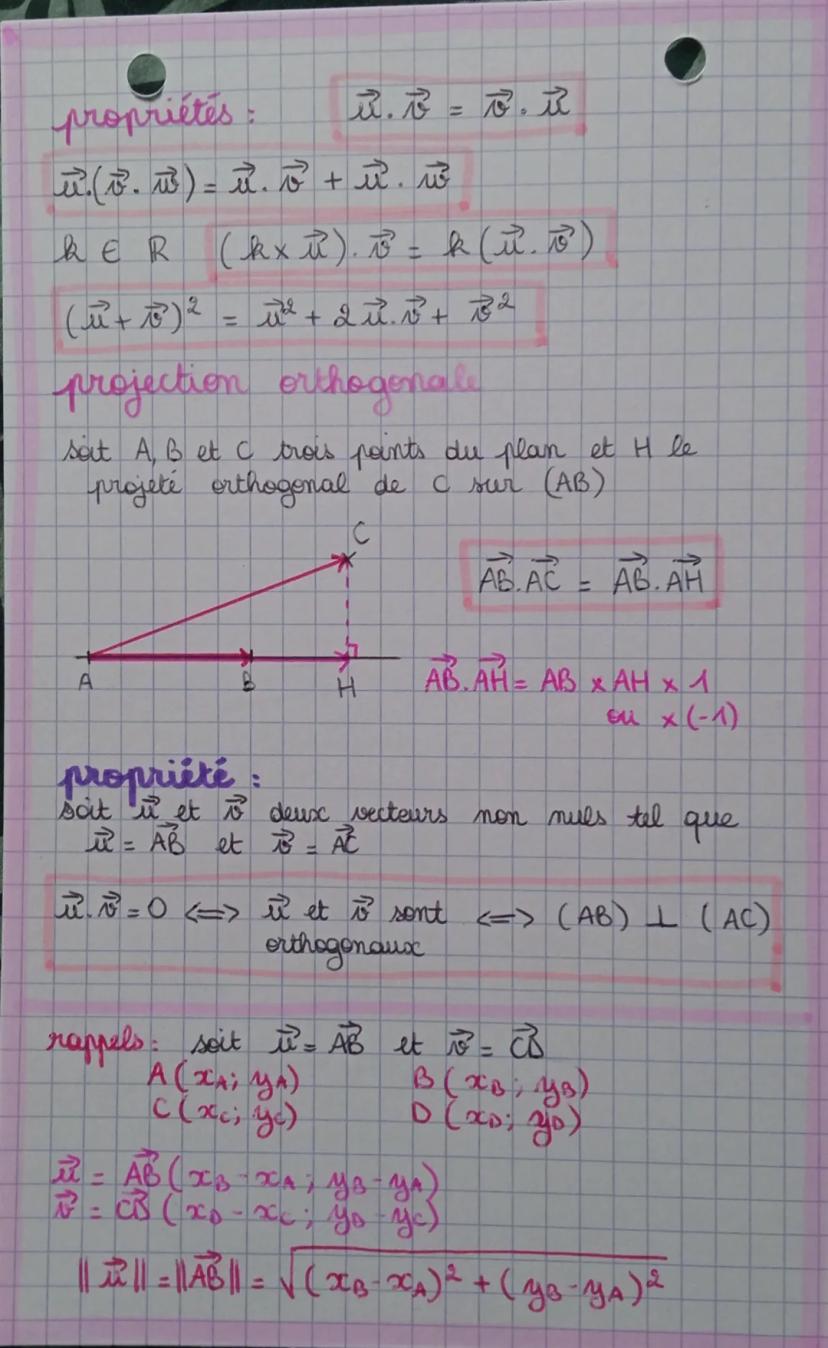 propriétés : u⃗.v⃗ = v⃗.u⃗
u⃗.(v⃗.w⃗) = u⃗.v⃗ + u⃗.w⃗
k ∈ R (k × u⃗).v⃗ = k(u⃗.v⃗)
(u⃗ + v⃗)² = u⃗² + 2u⃗.v⃗ + v⃗²
projection orthogonale
soit A, B et C trois points du plan et H le
projeté orthogonal de C sur (AB)
C
A B H
AB⃗.AC⃗ = AB⃗.AH⃗
AB⃗.AH⃗ = AB × AH × 1
ou × (-1)
propriété :
soit u⃗ et v⃗ deux vecteurs non nuls tel que
u⃗ = AB⃗ et v⃗ = AC⃗
u⃗.v⃗ = 0 <=> u⃗ et v⃗ sont <=> (AB) ⊥ (AC)
orthogonaux
rappels : soit u⃗ = AB⃗ et v⃗ = CD⃗
A(xA; yA) B(xB; yB)
C(xC; yC) D(xD; yD)
u⃗ = AB⃗ (xB - xA; yB - yA)
v⃗ = CD⃗ (xD - xC; yD - yC)
||u⃗|| = ||AB⃗|| = √((xB - xA)² + (yB - yA)²)